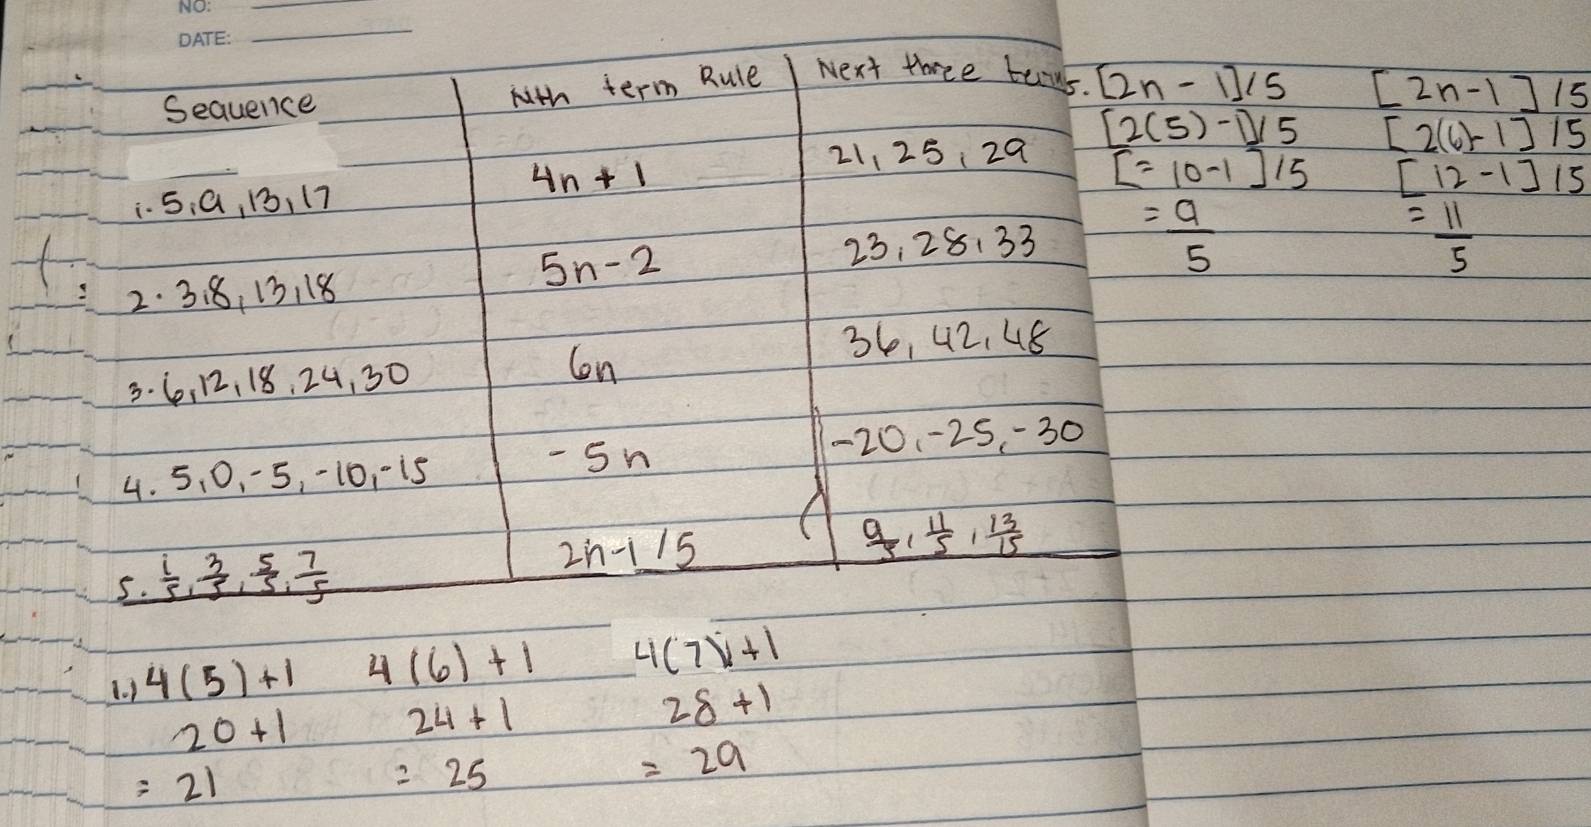 NO:
DATE:
Sequence Nth term Rule Next three terms
1. 5, 9, 13, 17 4n + 1 21, 25, 29
2. 3, 8, 13, 18 5n - 2 23, 28, 33
3. 6, 12, 18, 24, 30 6n 36, 42, 48
4. 5, 0, -5, -10, -15 -5n -20, -25, -30
5. 1/5, 3/5, 5/5, 7/5 2n-1/5 9/5, 11/5, 13/15
1.) 4(5)+1 4(6)+1 4(7)+1
20+1 24+1 28+1
= 21 = 25 = 29
5. [2n - 1]/5 [2n-1]/5
[2(5)-1]/5 [2(6)-1]/5
[= 10-1]/5 [12-1]/5
= 9/5 = 11/5